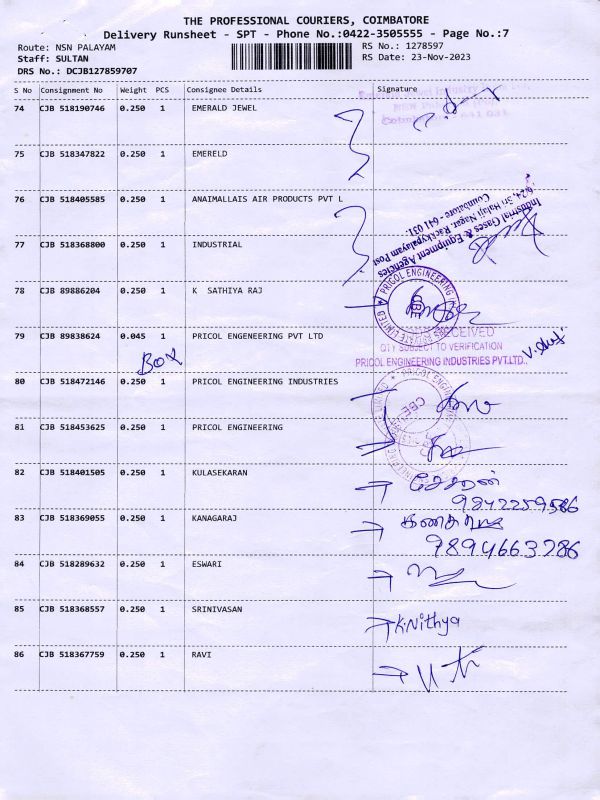 THE PROFESSIONAL COURIERS, COIMBATORE
Delivery Runsheet - SPT - Phone No.:0422-3505555 - Page No.:7
Route: NSN PALAYAM
RS No.: 1278597
Staff: SULTAN
RS Date: 23-Nov-2023
DRS No.: DCJB127859707
S No Consignment No Weight PCS Consignee Details Signature
74 CJB 518190746 0.250 1 EMERALD JEWEL
75 CJB 518347822 0.250 1 EMERELD
76 CJB 518405585 0.250 1 ANAIMALLAIS AIR PRODUCTS PVT L
Industrial Gases & Equipment Agencies
6/24, Sri Balaji Nagar, Rackkypalayam Post
Coimbatore - 641 031.
77 CJB 518368800 0.250 1 INDUSTRIAL
78 CJB 89886204 0.250 1 K SATHIYA RAJ
79 CJB 89838624 0.045 1 PRICOL ENGENEERING PVT LTD
RECEIVED
QTY SUBJECT TO VERIFICATION
PRICOL ENGINEERING INDUSTRIES PVT.LTD.,
BOX
80 CJB 518472146 0.250 1 PRICOL ENGINEERING INDUSTRIES
81 CJB 518453625 0.250 1 PRICOL ENGINEERING
82 CJB 518401505 0.250 1 KULASEKARAN
9842259586
83 CJB 518369055 0.250 1 KANAGARAJ
7894663286
84 CJB 518289632 0.250 1 ESWARI
85 CJB 518368557 0.250 1 SRINIVASAN
K.Nithya
86 CJB 518367759 0.250 1 RAVI